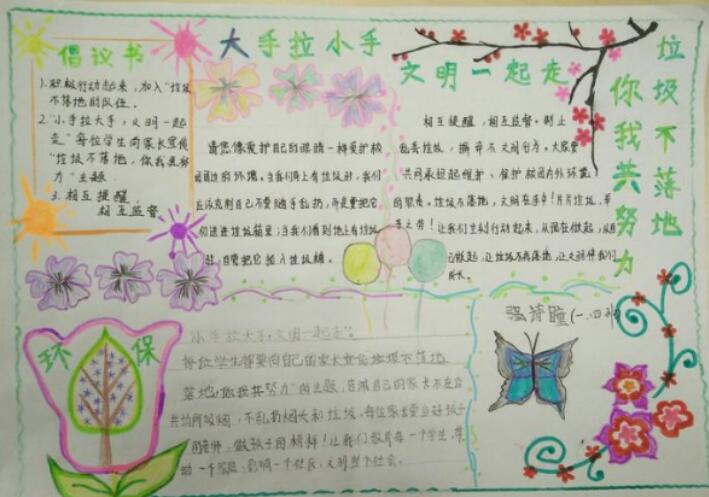 倡议书
1.积极行动起来，加入"垃圾
不落地的队伍。
2."小手拉大手，文明一起
走"每位学生向家长宣传
"垃圾不落地，你我共努
力"主题
3.相互提醒，
相互监督
大手拉小手
文明一起走
请您像爱护自己的眼睛一样爱护校
园周边的环境。当我们身上有垃圾时，我们
应该克制自己不要随手乱扔，而是要把它
扔进垃圾箱里；当我们看到地上有垃圾
时，自觉把它捡入垃圾桶。
相互提醒，相互监督。制止
乱丢垃圾，摒弃不文明行为。大家要
共同承担起维护、保护校园内外环境
的职责。垃圾不落地，文明在手中！片片垃圾，举
手之劳！让我们立刻行动起来，从现在做起，从自
己做起，让垃圾不再落地，让文明伴我们
成长。
垃圾不落地
你我共努力
环保
小手拉大手，文明一起走"。
每位学生都要向自己的家长宣传垃圾不落地
落地，你我共努力"的主题，告诫自己的家长不在公
共场所吸烟，不乱扔烟头和垃圾，每位家长要当好孩子
的老师，做孩子的榜样！让我们教育每一个学生，带
动一个家庭，影响一个社区，文明整个社会。